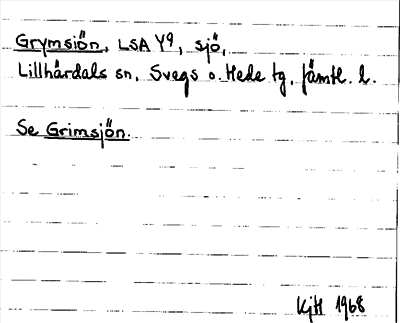 Grymsjön, LSA Y9, sjö,
Lillhärdals sn, Svegs o. Hede tg, Jämtl. l.
Se Grimsjön.
KjH 1968